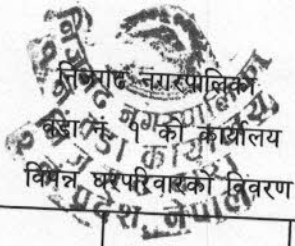 निजगढ नगरपालिका
वडा नं. १ को कार्यालय
विपन्न घरपरिवारको विवरण